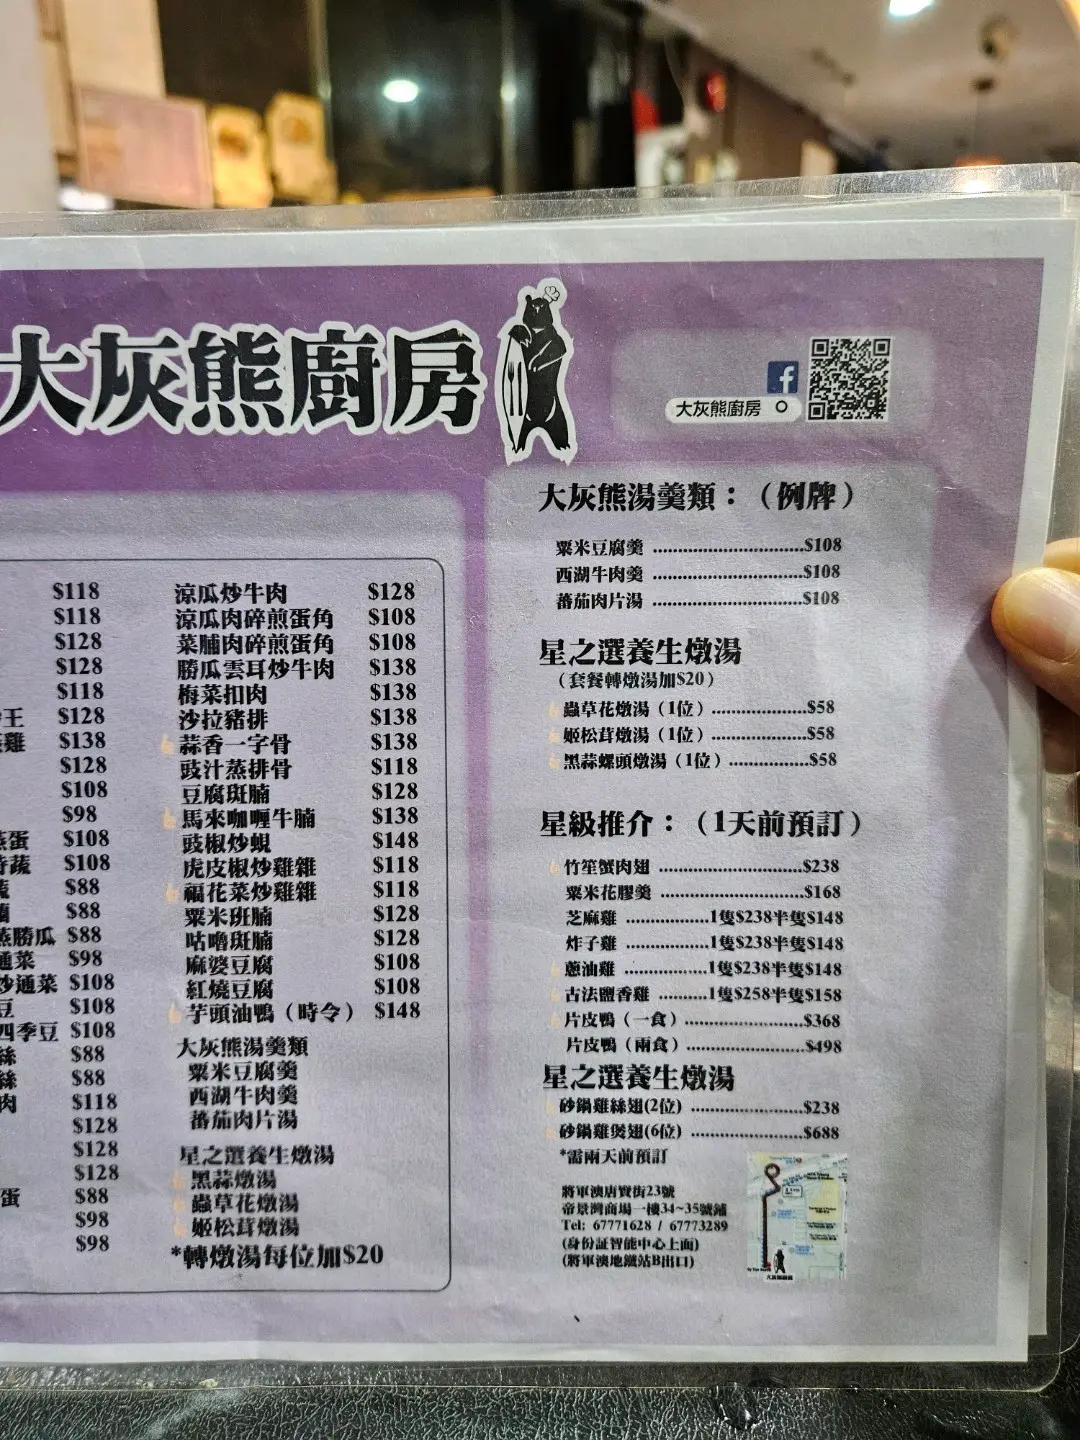 大灰熊廚房
大灰熊廚房
$118
$118
$128
$128
$118
王 $128
雞 $138
$128
$108
$98
蛋 $108
蔬 $108
$88
$88
勝瓜 $88
通菜 $98
炒通菜 $108
豆 $108
四季豆 $108
絲 $88
絲 $88
肉 $118
$128
$128
$128
蛋 $88
$98
$98
涼瓜炒牛肉 $128
涼瓜肉碎煎蛋角 $108
菜脯肉碎煎蛋角 $108
勝瓜雲耳炒牛肉 $138
梅菜扣肉 $138
沙拉豬排 $138
蒜香一字骨 $138
豉汁蒸排骨 $118
豆腐斑腩 $128
馬來咖喱牛腩 $138
豉椒炒蜆 $148
虎皮椒炒雞雜 $118
福花菜炒雞雜 $118
粟米班腩 $128
咕嚕斑腩 $128
麻婆豆腐 $108
紅燒豆腐 $108
芋頭油鴨（時令） $148
大灰熊湯羹類
粟米豆腐羹
西湖牛肉羹
蕃茄肉片湯
星之選養生燉湯
黑蒜燉湯
蟲草花燉湯
姬松茸燉湯
*轉燉湯每位加$20
大灰熊湯羹類：（例牌）
粟米豆腐羹 ..............................$108
西湖牛肉羹 ..............................$108
蕃茄肉片湯 ..............................$108
星之選養生燉湯
（套餐轉燉湯加$20）
蟲草花燉湯（1位）...................$58
姬松茸燉湯（1位）...................$58
黑蒜螺頭燉湯（1位）................$58
星級推介：（1天前預訂）
竹笙蟹肉翅 .............................$238
粟米花膠羹 .............................$168
芝麻雞 ................1隻$238半隻$148
炸子雞 ................1隻$238半隻$148
蔥油雞 ................1隻$238半隻$148
古法鹽香雞 ..........1隻$258半隻$158
片皮鴨（一食）........................$368
片皮鴨（兩食）........................$498
星之選養生燉湯
砂鍋雞絲翅(2位) ......................$238
砂鍋雞煲翅(6位) ......................$688
*需兩天前預訂
將軍澳唐賢街23號
帝景灣商場一樓34~35號鋪
Tel: 67771628 / 67773289
(身份証智能中心上面)
(將軍澳地鐵站B出口)
大灰熊廚房